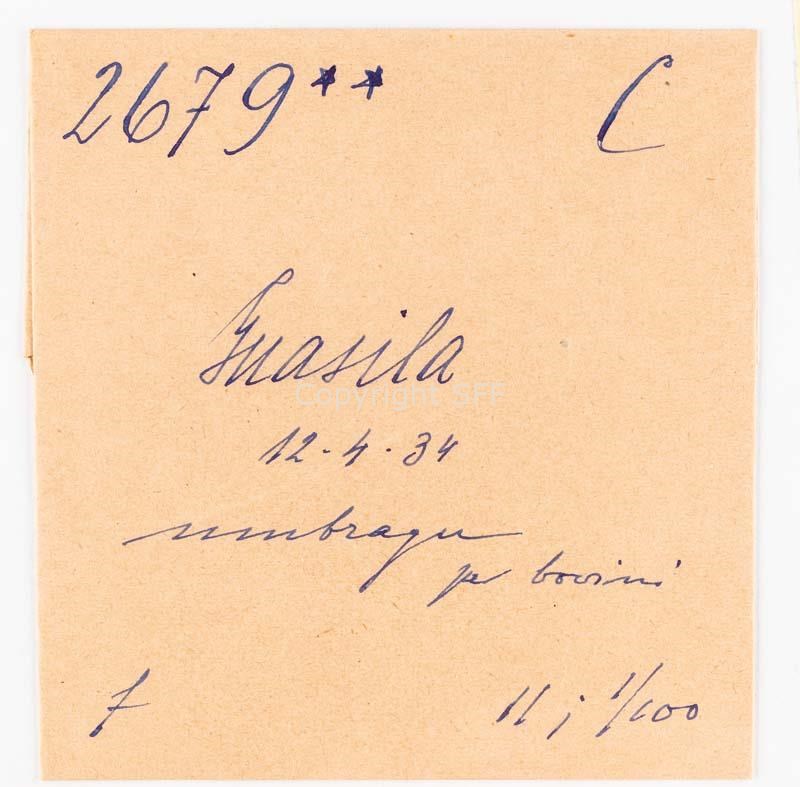 2679** C
Guasila
Copyright SFF
12.4.34
umbragu
per bovini
f 11; 1/100